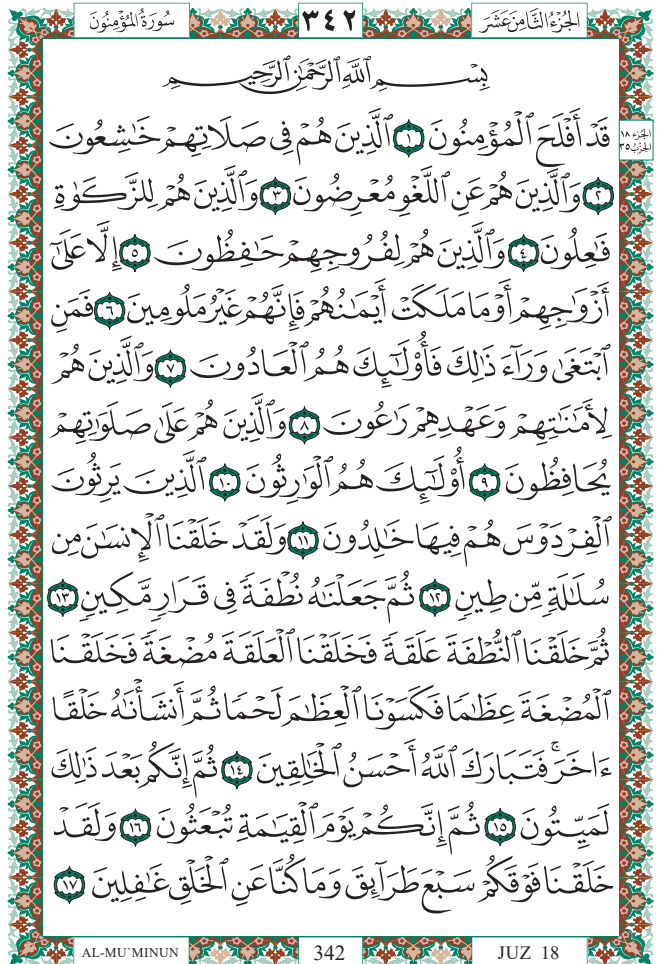 الجُزْءُ الثَّامِنَ عَشَرَ ٣٤٢ سُورَةُ المُؤْمِنُونَ
بِسْمِ ٱللَّهِ ٱلرَّحْمَٰنِ ٱلرَّحِيمِ
قَدْ أَفْلَحَ ٱلْمُؤْمِنُونَ ١ ٱلَّذِينَ هُمْ فِى صَلَاتِهِمْ خَٰشِعُونَ
الجزء ١٨
الحزب ٣٥
٢ وَٱلَّذِينَ هُمْ عَنِ ٱللَّغْوِ مُعْرِضُونَ ٣ وَٱلَّذِينَ هُمْ لِلزَّكَوٰةِ
فَٰعِلُونَ ٤ وَٱلَّذِينَ هُمْ لِفُرُوجِهِمْ حَٰفِظُونَ ٥ إِلَّا عَلَىٰٓ
أَزْوَٰجِهِمْ أَوْ مَا مَلَكَتْ أَيْمَٰنُهُمْ فَإِنَّهُمْ غَيْرُ مَلُومِينَ ٦ فَمَنِ
ٱبْتَغَىٰ وَرَآءَ ذَٰلِكَ فَأُو۟لَٰٓئِكَ هُمُ ٱلْعَادُونَ ٧ وَٱلَّذِينَ هُمْ
لِأَمَٰنَٰتِهِمْ وَعَهْدِهِمْ رَٰعُونَ ٨ وَٱلَّذِينَ هُمْ عَلَىٰ صَلَوَٰتِهِمْ
يُحَافِظُونَ ٩ أُو۟لَٰٓئِكَ هُمُ ٱلْوَٰرِثُونَ ١٠ ٱلَّذِينَ يَرِثُونَ
ٱلْفِرْدَوْسَ هُمْ فِيهَا خَٰلِدُونَ ١١ وَلَقَدْ خَلَقْنَا ٱلْإِنسَٰنَ مِن
سُلَٰلَةٍ مِّن طِينٍ ١٢ ثُمَّ جَعَلْنَٰهُ نُطْفَةً فِى قَرَارٍ مَّكِينٍ ١٣
ثُمَّ خَلَقْنَا ٱلنُّطْفَةَ عَلَقَةً فَخَلَقْنَا ٱلْعَلَقَةَ مُضْغَةً فَخَلَقْنَا
ٱلْمُضْغَةَ عِظَٰمًا فَكَسَوْنَا ٱلْعِظَٰمَ لَحْمًا ثُمَّ أَنشَأْنَٰهُ خَلْقًا
ءَاخَرَ ۚ فَتَبَارَكَ ٱللَّهُ أَحْسَنُ ٱلْخَٰلِقِينَ ١٤ ثُمَّ إِنَّكُم بَعْدَ ذَٰلِكَ
لَمَيِّتُونَ ١٥ ثُمَّ إِنَّكُمْ يَوْمَ ٱلْقِيَٰمَةِ تُبْعَثُونَ ١٦ وَلَقَدْ
خَلَقْنَا فَوْقَكُمْ سَبْعَ طَرَآئِقَ وَمَا كُنَّا عَنِ ٱلْخَلْقِ غَٰفِلِينَ ١٧
AL-MU`MINUN 342 JUZ 18